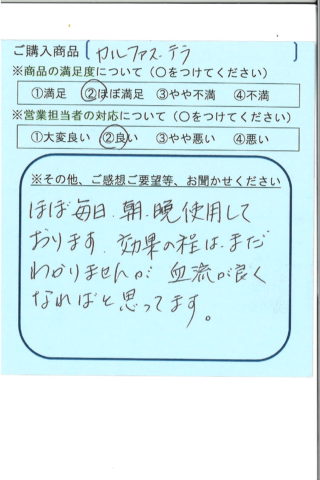 ご購入商品 カルファス・テラ
※商品の満足度について(○をつけてください)
①満足 ②ほぼ満足 ③やや不満 ④不満
※営業担当者の対応について(○をつけてください)
①大変良い ②良い ③やや悪い ④悪い
※その他、ご感想ご要望等、お聞かせください
ほぼ毎日、朝、晩使用して
おります。効果の程は、まだ
わかりませんが 血流が良く
なればと思ってます。